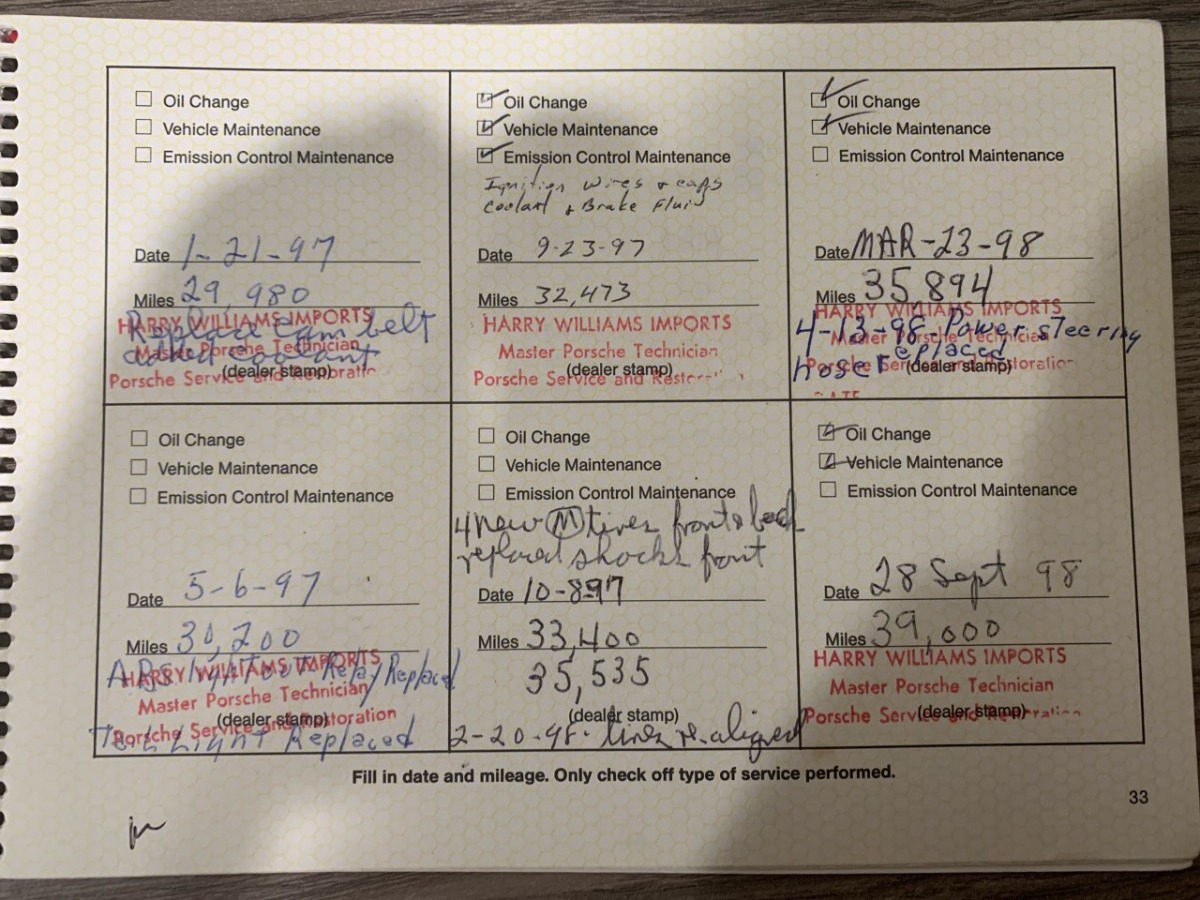 Oil Change
Vehicle Maintenance
Emission Control Maintenance
Date 1-21-97
Miles 29,980
HARRY WILLIAMS IMPORTS
Replace Cam belt
Master Porsche Technician
added coolant
(dealer stamp)
Porsche Service and Restoratio
Oil Change
Vehicle Maintenance
Emission Control Maintenance
Ignition wires & caps
coolant & Brake Fluid
Date 9-23-97
Miles 32,473
HARRY WILLIAMS IMPORTS
Master Porsche Technician
(dealer stamp)
Porsche Service and Restor
Oil Change
Vehicle Maintenance
Emission Control Maintenance
Date MAR-23-98
Miles 35894
HARRY WILLIAMS IMPORTS
4-13-98-Power steering
Master Porsche Technician
hose replaced
(dealer stamp)
Porsche Service and Restoratio
Oil Change
Vehicle Maintenance
Emission Control Maintenance
Date 5-6-97
Miles 30,200
HARRY WILLIAMS IMPORTS
ABS light out Relay Replaced
Master Porsche Technician
(dealer stamp)
Porsche Service and Restoration
Light Replaced
Oil Change
Vehicle Maintenance
Emission Control Maintenance
4 new M tires front & back
replaced shocks front
Date 10-897
Miles 33,400
35,535
(dealer stamp)
2-20-98- tires re-aligned
Oil Change
Vehicle Maintenance
Emission Control Maintenance
Date 28 Sept 98
Miles 39,000
HARRY WILLIAMS IMPORTS
Master Porsche Technician
(dealer stamp)
Porsche Service and Restoratio
Fill in date and mileage. Only check off type of service performed.
33